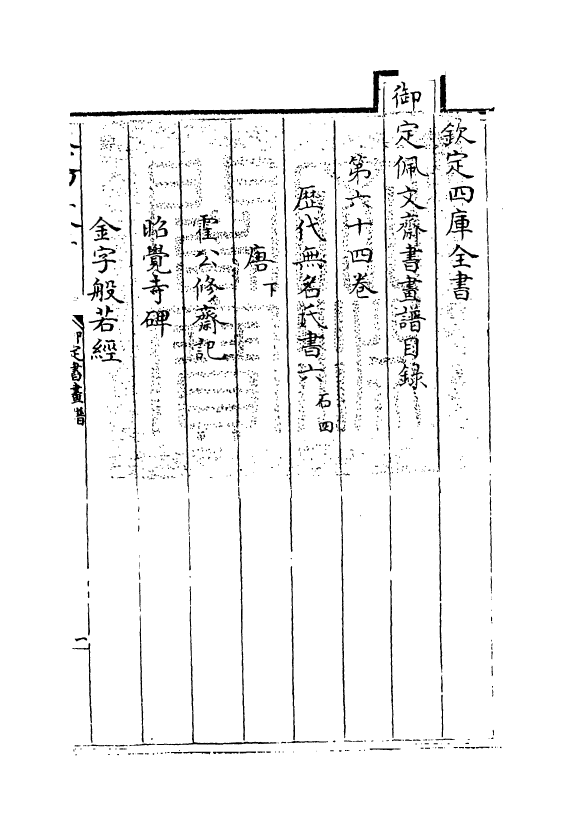 欽定四庫全書
御定佩文齋書畫譜目錄
第六十四卷
歴代無名氏書六石四
唐下
霍公修齋記
昭覺寺碑
金字般若經
御定書畫譜
一